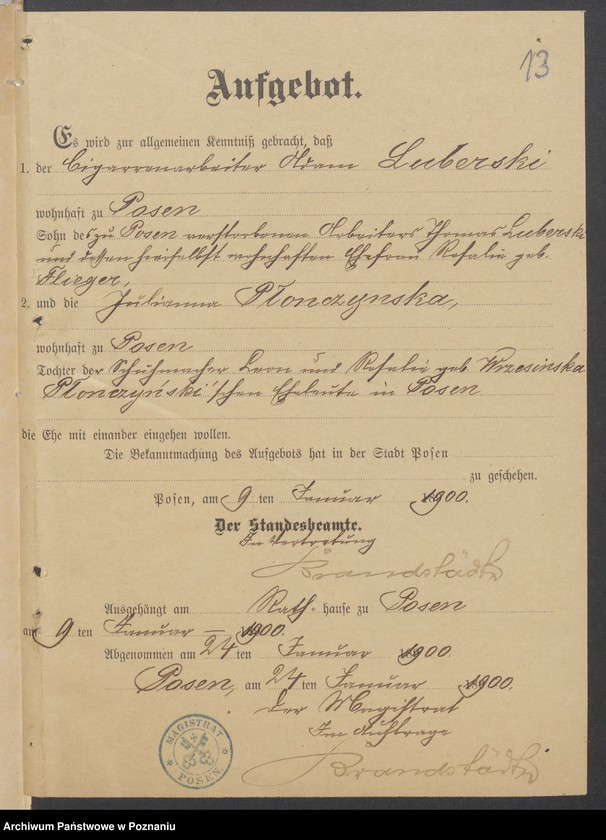 13
Aufgebot.
Es wird zur allgemeinen Kenntniß gebracht, daß
1. der Cigarrenarbeiter Adam Luberski
wohnhaft zu Posen
Sohn des zu Posen verstorbenen Arbeiters Thomas Luberski
und dessen hieselbst wohnhaften Ehefrau Rosalie geb.
Flieger,
2. und die Julianna Płonczynska,
wohnhaft zu Posen
Tochter der Schuhmacher Leon und Rosalie geb. Wrzesinska
Płonczyński'schen Eheleute in Posen
die Ehe mit einander eingehen wollen.
Die Bekanntmachung des Aufgebots hat in der Stadt Posen
zu geschehen.
Posen, am 9 ten Januar 1900.
Der Standesbeamte.
In Vertretung
Brandstädt
Ausgehängt am Rath-hause zu Posen
am 9 ten Januar – 1900.
Abgenommen am 24 ten Januar 1900.
Posen, am 24 ten Januar 1900.
Der Magistrat
Im Auftrage
Brandstädt
MAGISTRAT POSEN
Archiwum Państwowe w Poznaniu